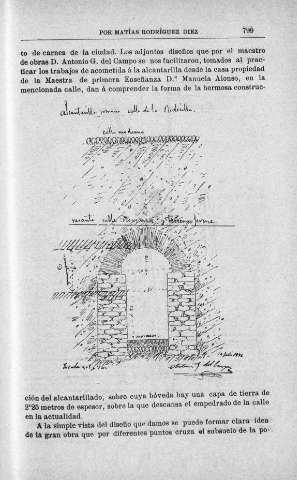 POR MATÍAS RODRÍGUEZ DIEZ 799
to de carnes de la ciudad. Los adjuntos diseños que por el maestro
de obras D. Antonio G. del Campo se nos facilitaron, tomados al prac-
ticar los trabajos de acometida á la alcantarilla desde la casa propiedad
de la Maestra de primera Enseñanza D.ª Manuela Alonso, en la
mencionada calle, dan á comprender la forma de la hermosa construc-
Alcantarilla romana calle de la
calle moderna
calle
ción del alcantarillado, sobre cuya bóveda hay una capa de tierra de
2'25 metros de espesor, sobre la que descansa el empedrado de la calle
en la actualidad.
A la simple vista del diseño que damos se puede formar clara idea
de la gran obra que por diferentes puntos cruza el subsuelo de la po-